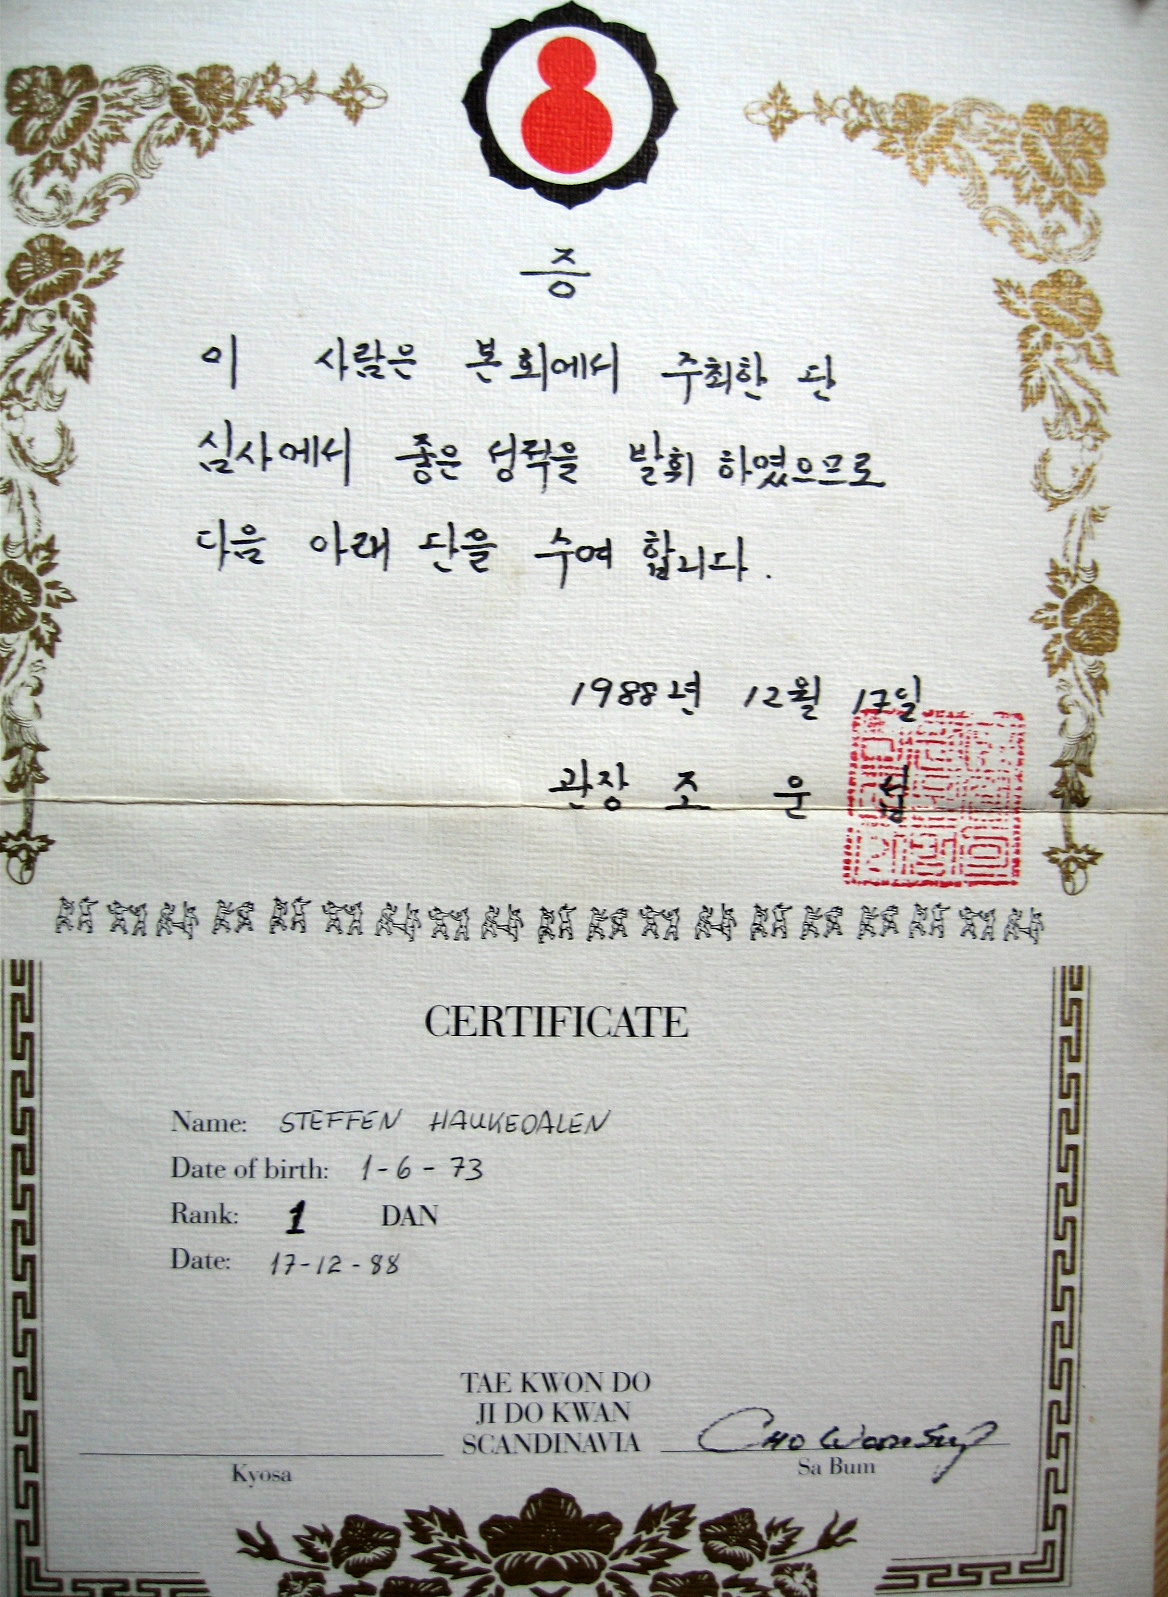 증
이 사람은 본회에서 주최한 단
심사에서 좋은 성적을 발휘 하였으므로
다음 아래 단을 수여 합니다.
1988년 12월 17일
관장 조 운 섭
CERTIFICATE
Name: STEFFEN HAUKEDALEN
Date of birth: 1-6-73
Rank: 1 DAN
Date: 17-12-88
TAE KWON DO
JI DO KWAN
SCANDINAVIA
CHO WOON SUP
Kyosa
Sa Bum